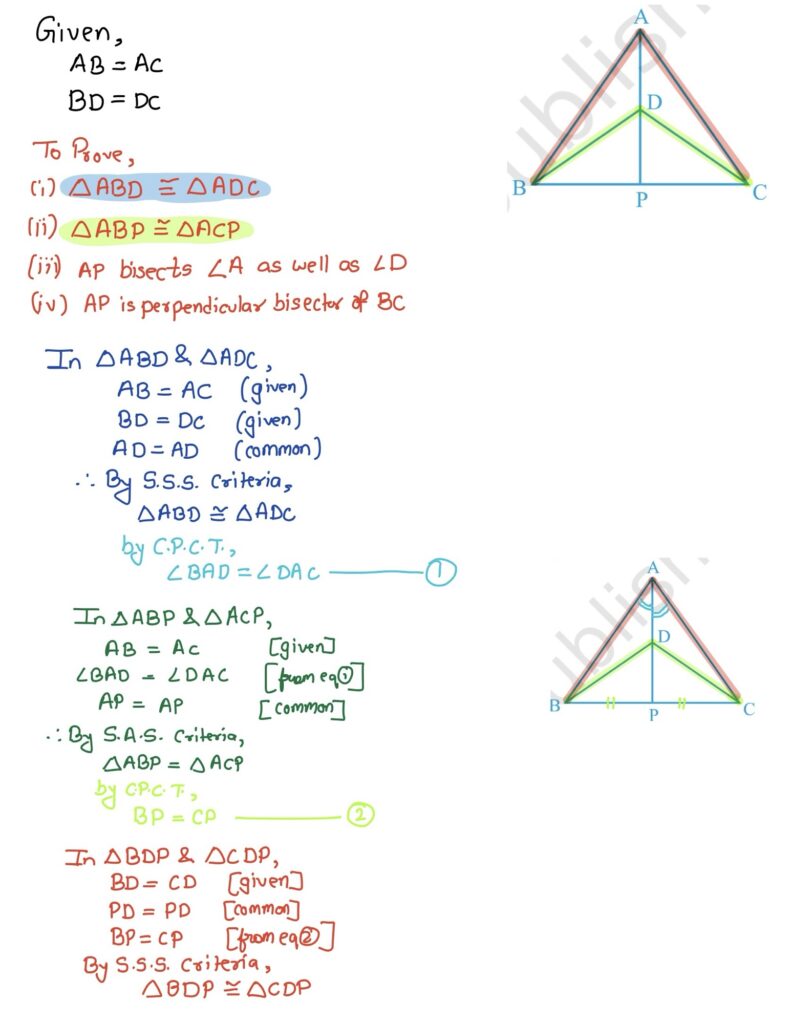 Given,
AB = AC
BD = DC
To Prove,
(i) △ABD ≅ △ADC
(ii) △ABP ≅ △ACP
(iii) AP bisects ∠A as well as ∠D
(iv) AP is perpendicular bisector of BC
A
D
B
P
C
In △ABD & △ADC,
AB = AC (given)
BD = DC (given)
AD = AD (common)
∴ By S.S.S. Criteria,
△ABD ≅ △ADC
by C.P.C.T.,
∠BAD = ∠DAC ——— ①
In △ABP & △ACP,
AB = AC [given]
∠BAD = ∠DAC [from eq①]
AP = AP [common]
∴ By S.A.S. Criteria,
△ABP = △ACP
by C.P.C.T.,
BP = CP ——— ②
A
D
B
P
C
In △BDP & △CDP,
BD = CD [given]
PD = PD [common]
BP = CP [from eq②]
By S.S.S. Criteria,
△BDP ≅ △CDP